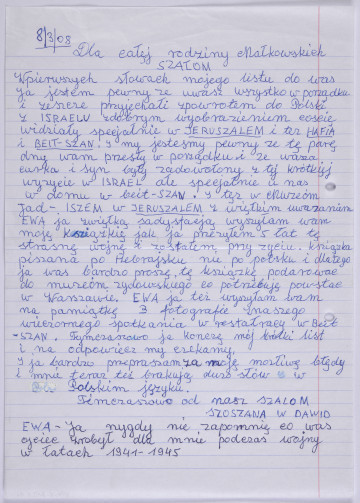 8/3/08
Dla całej rodziny Małkowskich
SZALOM
W pierwszych słowach mojego listu do was
ja jestem pewny ze uwasz wszystko w porządku
i ze przyjechali zpowrotem do Polski
z ISRAELU zdobrym wyobrazeniem coście
widziały specjalnie w JERUSZALEM i tez HAFIA
i BEIT-SZAN. I my jesteśmy pewny ze tę parę
dny wam preszły w porządku i ze wasza
curka i syn byly zadowolony z tij krótkij
wyzycie w ISRAEL ale specjalnie u nas
w domu w BEIT-SZAN. I tez w Muzeóm
Jad-WSZEM w JERUSZALEM z wielkim wrażaniem
EWA ja zwielką sadysfacją wysyłam wam
moją książkij jak ja przezyłem 5 lat tę
strasną wojnę i zostałem przy życiu. ksiązka
pissana po Hebrajsku nie po polsku i dlatego
ja was bardzo proszę tę ksiązkę podarować
do muzeóm zydowskiego co potrzebują powstać
w Warszawie. EWA ja tez wysyłam wam
na pamiątkę 3 fotografie znaszego
wieczornego spotkania w restałracy w BEIT
-SZAN. Tymczasowo ja konczę mój krótki list
i na odpowiecz my czekamy.
I ja bardzo przepraszam za moje mozliwe błędy
i mnie teraz tez brakują duzo słów w
Polskim języku.
Tymczasowo od nasz SZALOM
SZOSZANA W DAWID
EWA - Ja nygdy nie zapomnię co was
ojciec wrobył dla mnie podczas wojny
w łatach 1941-1945